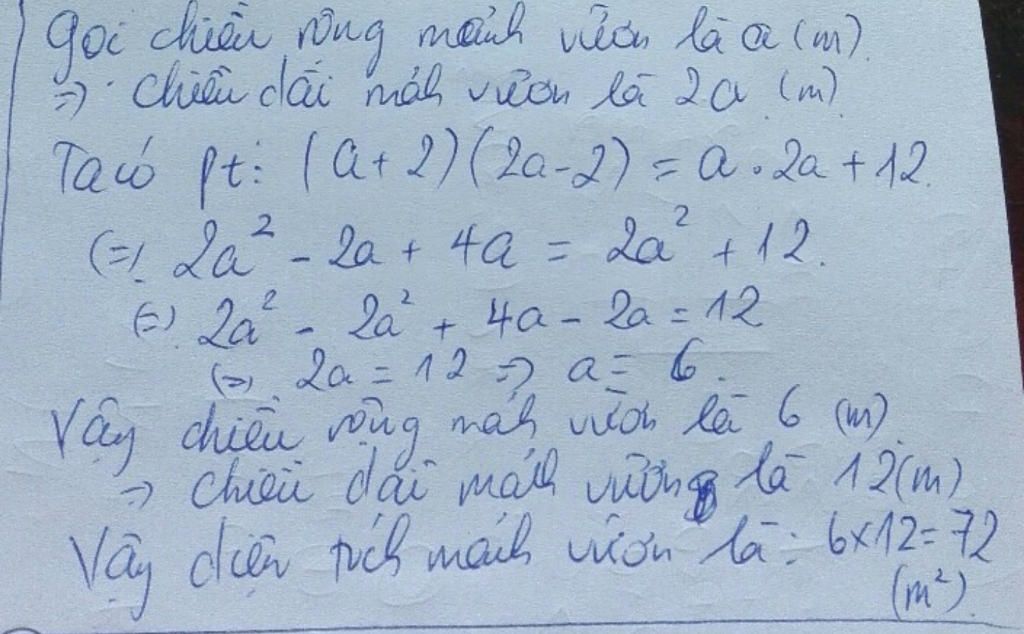 Gọi chiều rộng mảnh vườn là a (m).
=> chiều dài mảnh vườn là 2a (m)
Ta có pt: (a+2)(2a-2) = a.2a+12.
(=) 2a² - 2a + 4a = 2a² + 12.
(=) 2a² - 2a² + 4a - 2a = 12
(=) 2a = 12 => a = 6.
Vậy chiều rộng mảnh vườn là 6 (m).
=> chiều dài mảnh vườn là 12(m)
Vậy diện tích mảnh vườn là: 6x12=72
(m²).